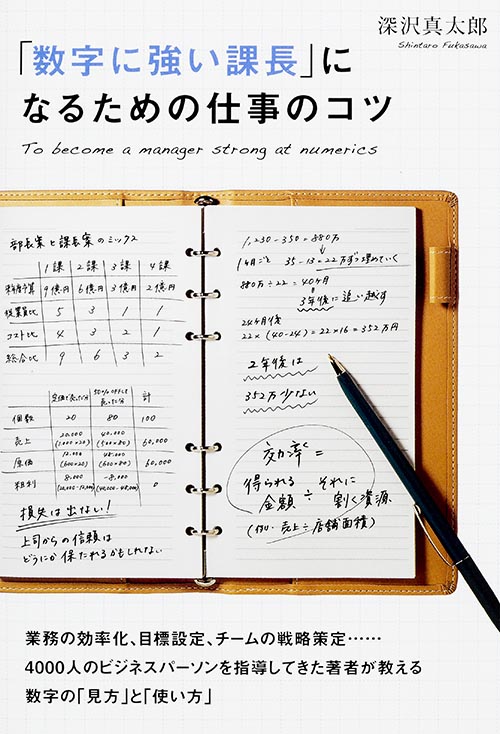 深沢真太郎
Shintaro Fukasawa
「数字に強い課長」に
なるための仕事のコツ
To become a manager strong at numerics
部長案と課長案のミックス
1課 2課 3課 4課
9億円 6億円 3億円 2億円
従業員比 5 3 1 1
コスト比 4 3 2 1
総合比 9 6 3 2
定価で売った分 50%OFFで売った分 計
個数 20 80 100
売上 20,000 40,000 60,000
(1,000×20) (500×80)
原価 12,000 48,000 60,000
(600×20) (600×80)
粗利 8,000 -8,000 0
(20,000-12,000) (40,000-48,000)
損失は出ない!
上司からの信頼は
どうにか保たれるかもしれない
1,230-350=880万
1ヶ月ごと 35-13=22万ずつ埋めていく
880万÷22=40ヶ月
3年後に追い越す
24ヶ月後
22×(40-24)=22×16=352万円
2年後は
352万少ない
効率=
得られる金額÷それに割く資源
(例:売上÷店舗面積)
業務の効率化、目標設定、チームの戦略策定……
4000人のビジネスパーソンを指導してきた著者が教える
数字の「見方」と「使い方」